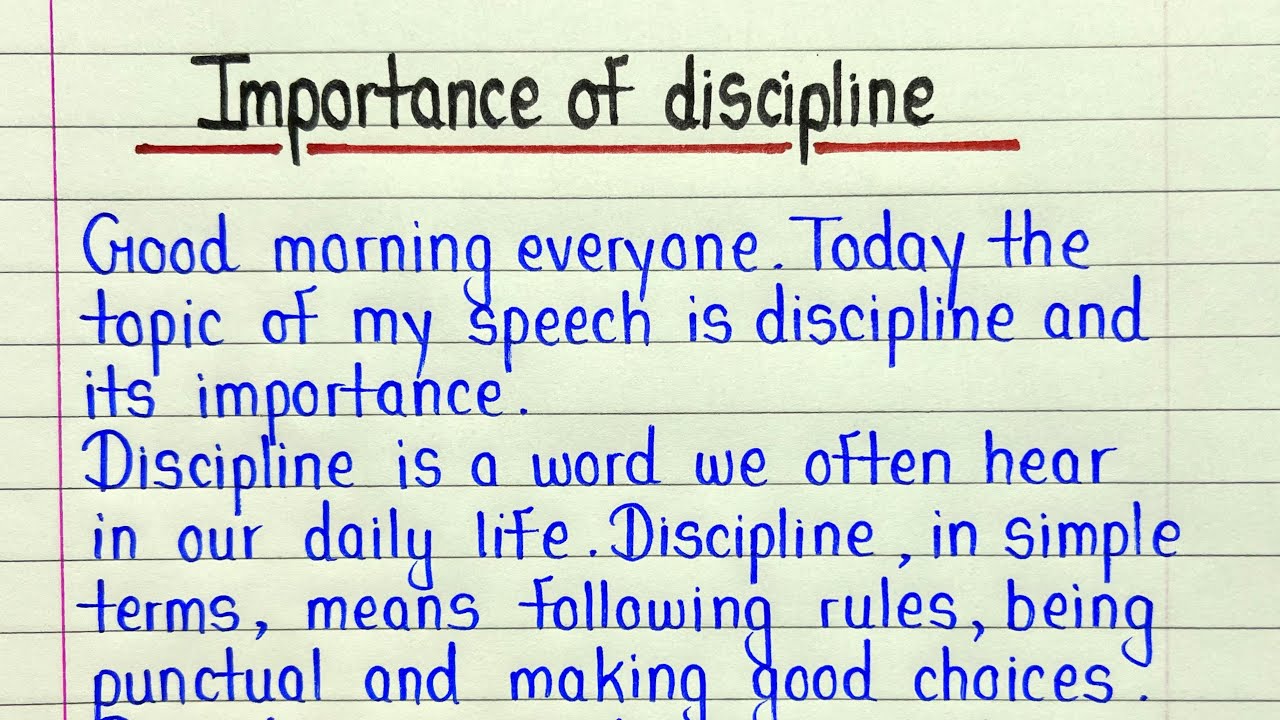 Importance of discipline
Good morning everyone. Today the
topic of my speech is discipline and
its importance.
Discipline is a word we often hear
in our daily life. Discipline, in simple
terms, means following rules, being
punctual and making good choices.